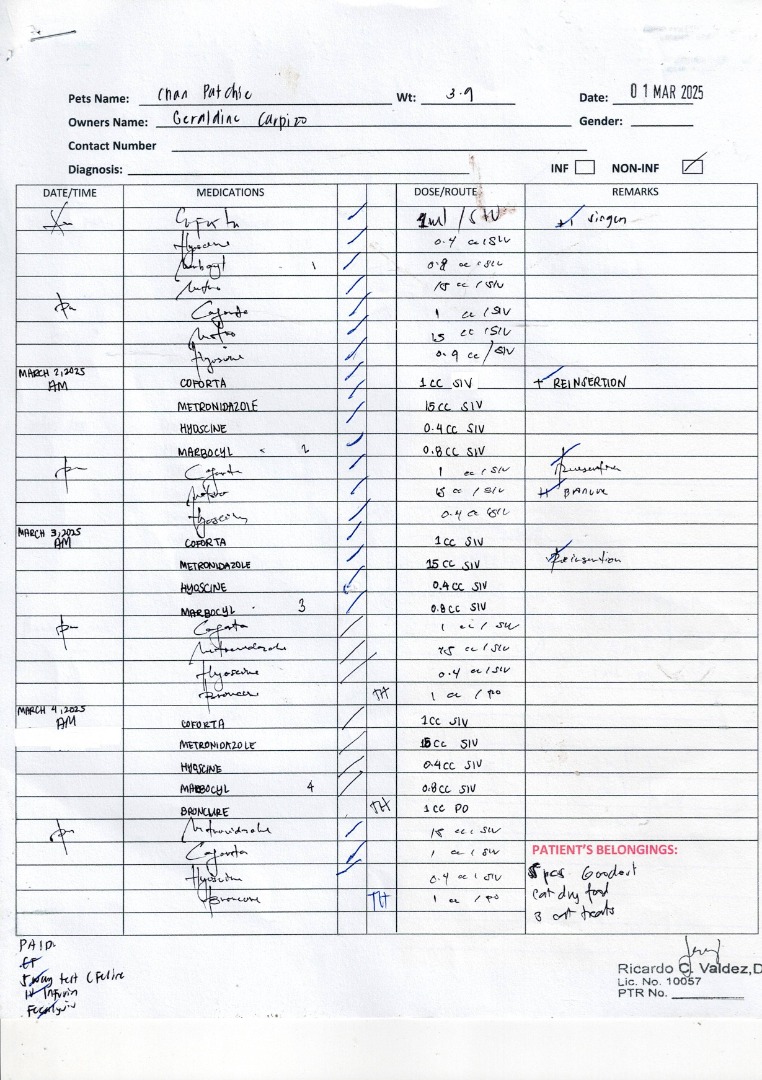 Pets Name: Chan Patchie Wt: 3.9 Date: 01 MAR 2025
Owners Name: Geraldine Carpizo Gender:
Contact Number
Diagnosis: INF NON-INF
DATE/TIME MEDICATIONS DOSE/ROUTE REMARKS
Coforta 1ml / SIV
Hyoscine 0.4 cc / SIV
Marbocyl 1 0.8 cc / SIV
Metro 15 cc / SIV
pm Coforta 1 cc / SIV
Metro 15 cc / SIV
Hyoscine 0.4 cc / SIV
MARCH 2,2025
AM COFORTA 1CC SIV + REINSERTION
METRONIDAZOLE 15CC SIV
HYOSCINE 0.4CC SIV
MARBOCYL 2 0.8CC SIV
pm Coforta 1 cc / SIV
Metro 15 cc / SIV
Hyoscine 0.4 cc SIV
MARCH 3,2025
AM COFORTA 1CC SIV
METRONIDAZOLE 15CC SIV Reinsertion
HYOSCINE 0.4CC SIV
MARBOCYL 3 0.8CC SIV
pm Coforta 1 cc / SIV
Metronidazole 15 cc / SIV
Hyoscine 0.4 cc / SIV
Broncure TH 1 cc / PO
MARCH 4,2025
AM COFORTA 1CC SIV
METRONIDAZOLE 15CC SIV
HYOSCINE 0.4CC SIV
MARBOCYL 4 0.8CC SIV
BRONCURE TH 1CC PO
pm Metronidazole 15 cc / SIV
Coforta 1 cc / SIV
Hyoscine 0.4 cc / SIV
Broncure TH 1 cc / PO
PATIENT'S BELONGINGS:
5 pcs Goodest
cat dry food
3 cat treats
PAID:
CF
5 way test (Feline
IV Infusion
Fecalysis
Ricardo C. Valdez,D
Lic. No. 10057
PTR No.